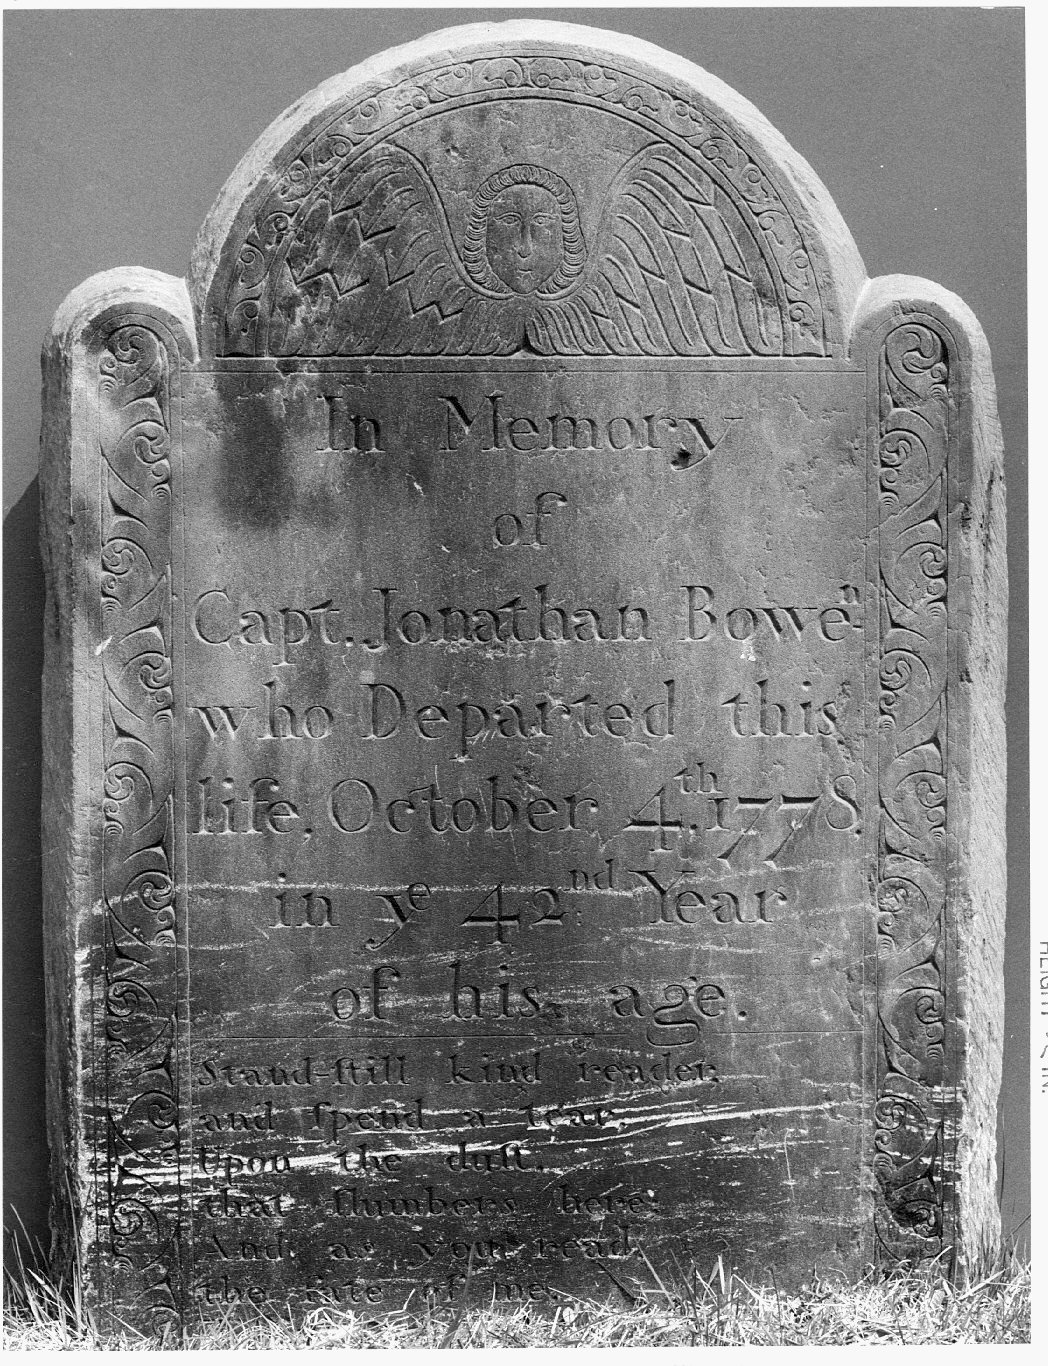 In Memory
of
Capt. Jonathan Bowe.ⁿ
who Departed this
life, October 4.ᵗʰ 1778
in yᵉ 42:ⁿᵈ Year
of his age.
Stand-ſtill kind reader,
and ſpend a tear,
Upon the duſt,
that ſlumbers here:
And as you read
the fate of me,